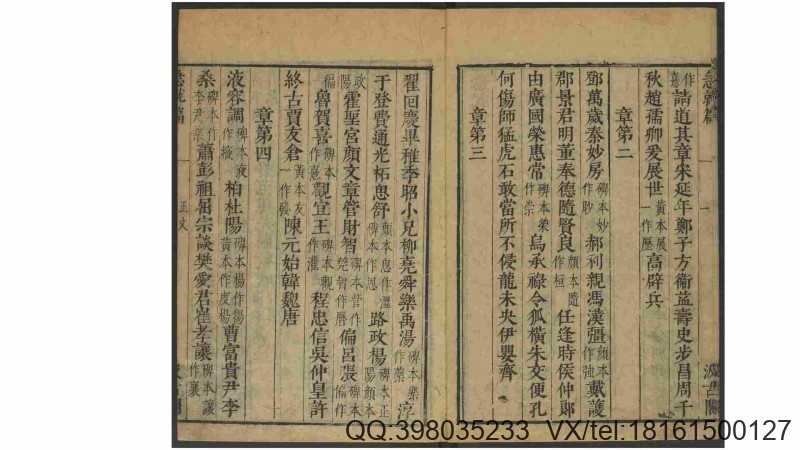 急就篇
作意 請道其章宋延年鄭子方衞益壽史步昌周千
秋趙孺卿爰展世 黃本展一作歷 高辟兵
章第二
鄧萬歲秦妙房 碑本妙作眇 郝利親馮漢彊 顔本彊作強 戴護
郡景君明董奉德隨賢良 顔本隨作桓 任逢時侯仲郎
由廣國榮惠常 碑本榮作崇 烏承祿令狐橫朱交便孔
何傷師猛虎石敢當所不侵龍未央伊嬰齊
章第三
翟回慶畢稚季昭小兄柳堯舜樂禹湯 碑本樂作藥 淳
于登費通光柘恩舒 路政楊
霍聖宮顔文章管財智 偏呂張
魯賀喜 觀宜王 程忠信吳仲皇許
終古賈友倉 黃本友一作發 陳元始韓魏唐
章第四
液容調 柏杜陽 曹富貴尹李
桑 蕭彭祖屈宗談樊愛君崔孝讓 碑本讓作襄
急就篇
正文
汲古閣
QQ:398035233 VX/tel:18161500127